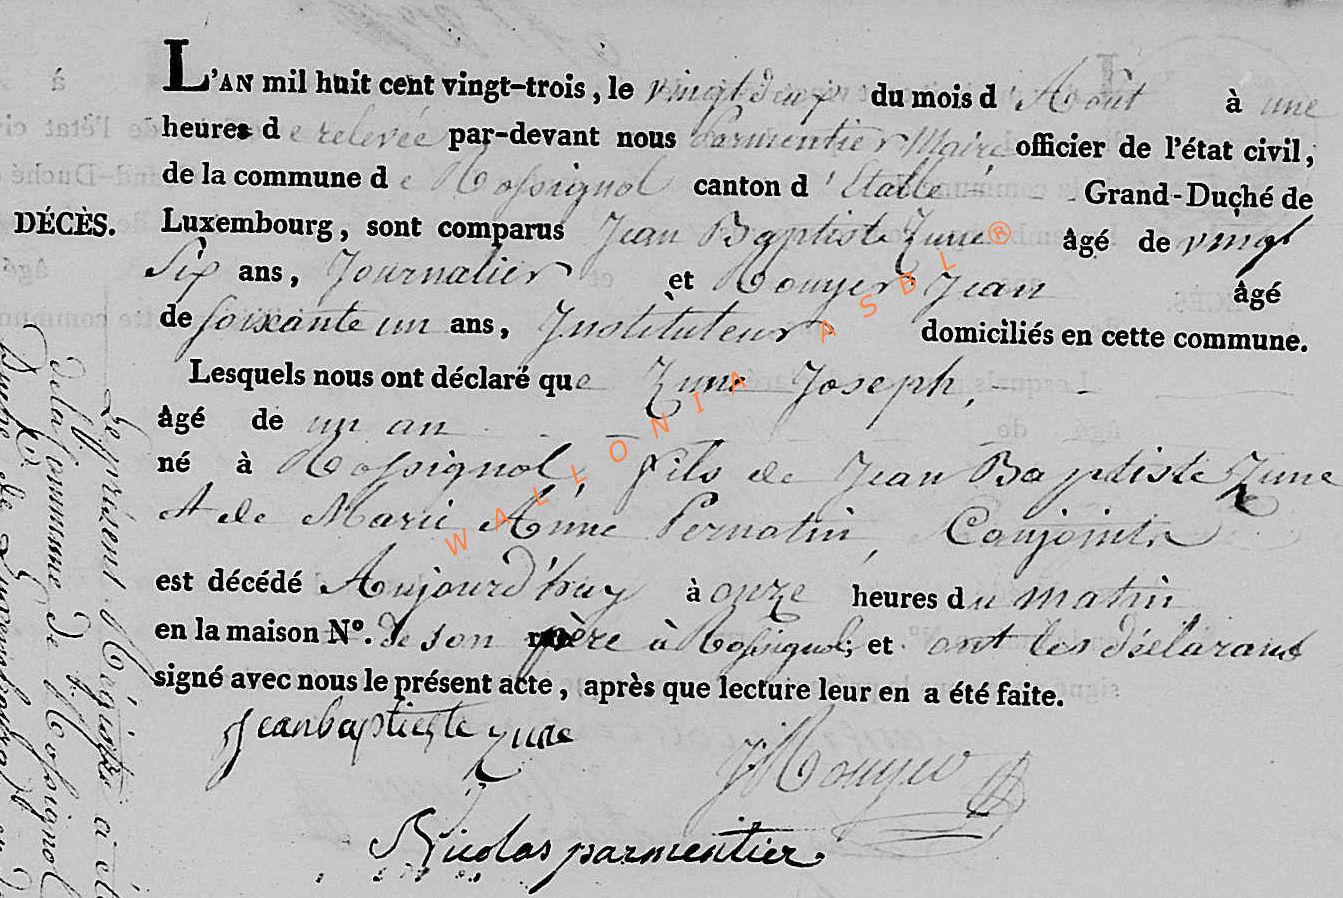 L'AN mil huit cent vingt-trois, le vingt deux du mois d'Aout à une
heures de relevée par-devant nous Parmentier Maire officier de l'état civil,
de la commune de Rossignol canton d'Etalle Grand-Duché de
DÉCÈS. Luxembourg, sont comparus Jean Baptiste Zune âgé de vingt
Six ans, Journalier et Rouyer Jean âgé
de soixante un ans, Instituteur domiciliés en cette commune.
Lesquels nous ont déclaré que Zune Joseph,
âgé de un an
né à Rossignol, fils de Jean Baptiste Zune
et de Marie Anne Pernotin, Conjoints
est décédé Aujourd'huy à onze heures du matin
en la maison N°. de son père à Rossignol; et ont les déclarans
signé avec nous le présent acte, après que lecture leur en a été faite.
Jean baptiste Zune
JRouyer
Nicolas parmentier
Le présent Régistre a été
de la Commune de Rossignol
WALLONIA ASBL®